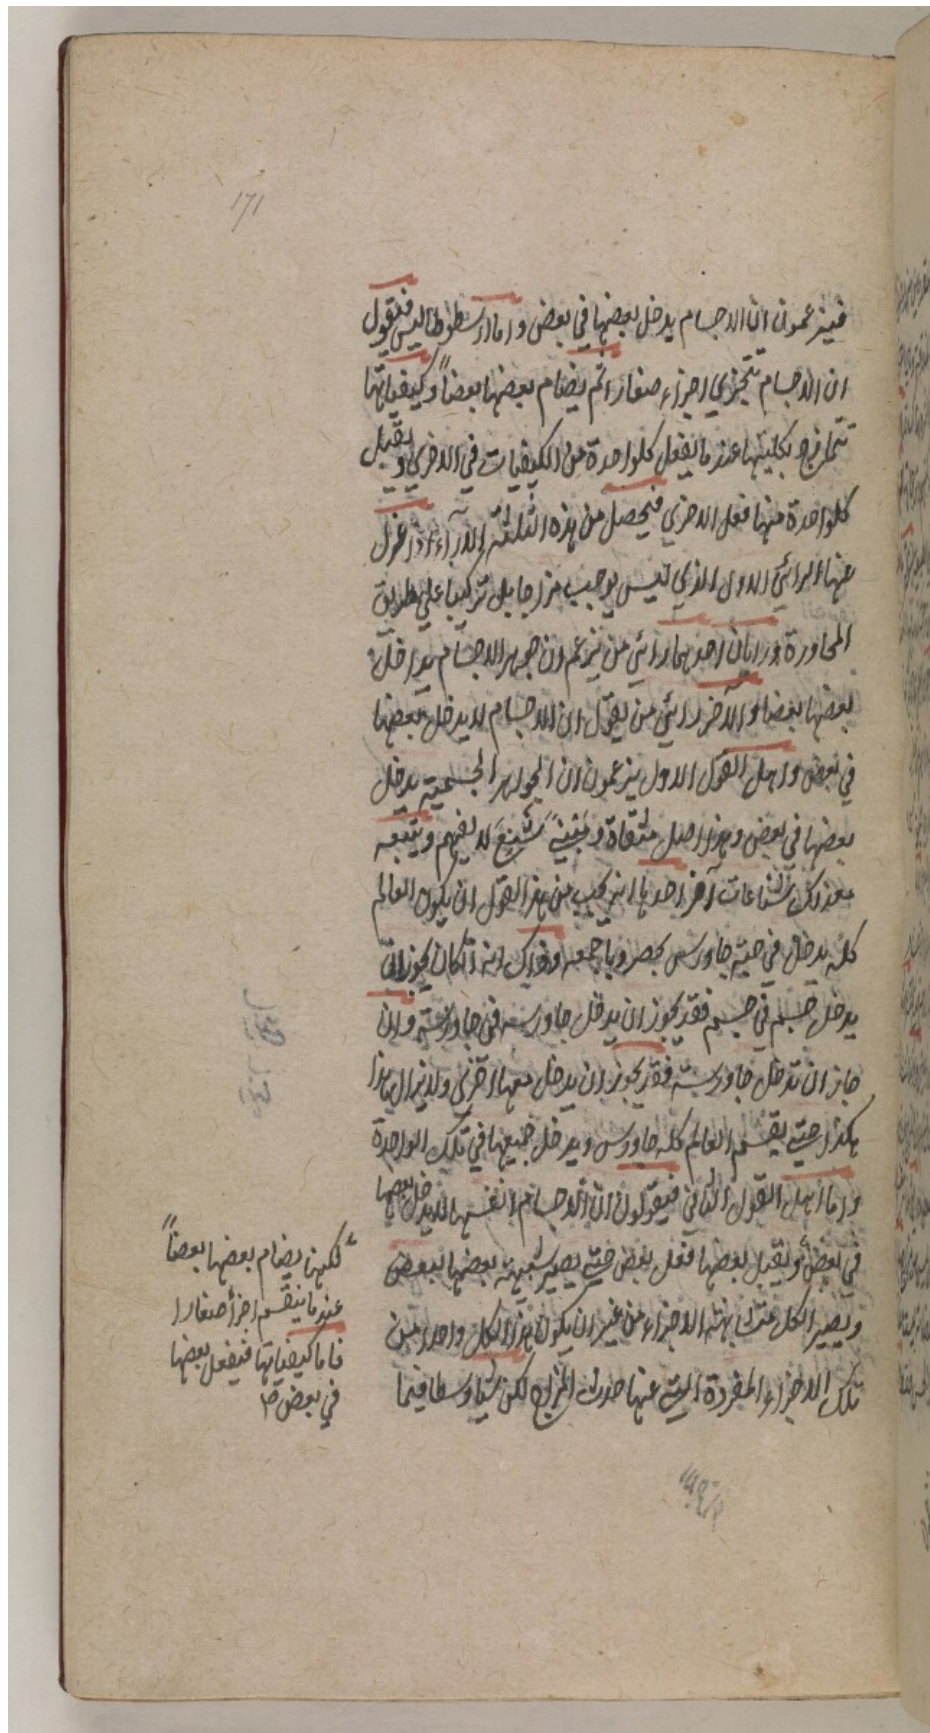 ١٧١
فيزعمون ان الاجسام يدخل بعضها في بعض واما ارسطوطاليس فيقول
ان الاجسام تتجزي اجزاء صغارا ثم يضام بعضها بعضاً وكيفياتها
تتمازج بكليتها عندما يفعل كلواحدة من الكيفيات في الاخري ويقبل
كلواحدة منها فعل الاخري فيحصل من هذه الثلثة الآراء اذا عزل
عنها الرائي الاول الذي ليس يوجب مزاجا بل تركيبا علي طريق
المجاورة رايان احدهما رائي من يزعم ان جوهر الاجسام يداخل
بعضها بعضا والآخر رائي من يقول ان الاجسام لا يدخل بعضها
في بعض واهل القول الاول يزعمون ان الجواهر الجسمية يدخل
بعضها في بعض وهذا اصل شنع لا يفهم ويتبعه
بعد ذلك شناعات آخر احدها انه يجب من هذا القول ان يكون العالم
كله يدخل في حبة جاورس باجمعه وذلك انه ان كان يجوز ان
يدخل جسم في جسم فقد يجوز ان يدخل جاورسة في جاورسة وان
جاز ان تدخل جاورسة فقد يجوز ان يدخل معها اخري ولا يزال هذا
هكذا حتي يقسم العالم كله جاورس ويدخل جميعها في تلك الواحدة
واما اهل القول الثاني فيقولون ان الاجسام انفسها لا يدخل بعضها
في بعض ويقبل بعضها فعل بعض حتي يصير شبيهة بعضها ببعض
ويصير الكل متشابهة الاجزاء من غير ان يكون هذا الكل واحدا من
تلك الاجزاء المفردة التي عنها حدث المزاج لكن شيا وسطا فيما
لكنها يضام بعضها بعضاً
عندما ينقسم اجزأ صغارا
فاما كيفياتها فيفعل بعضها
في بعض صح